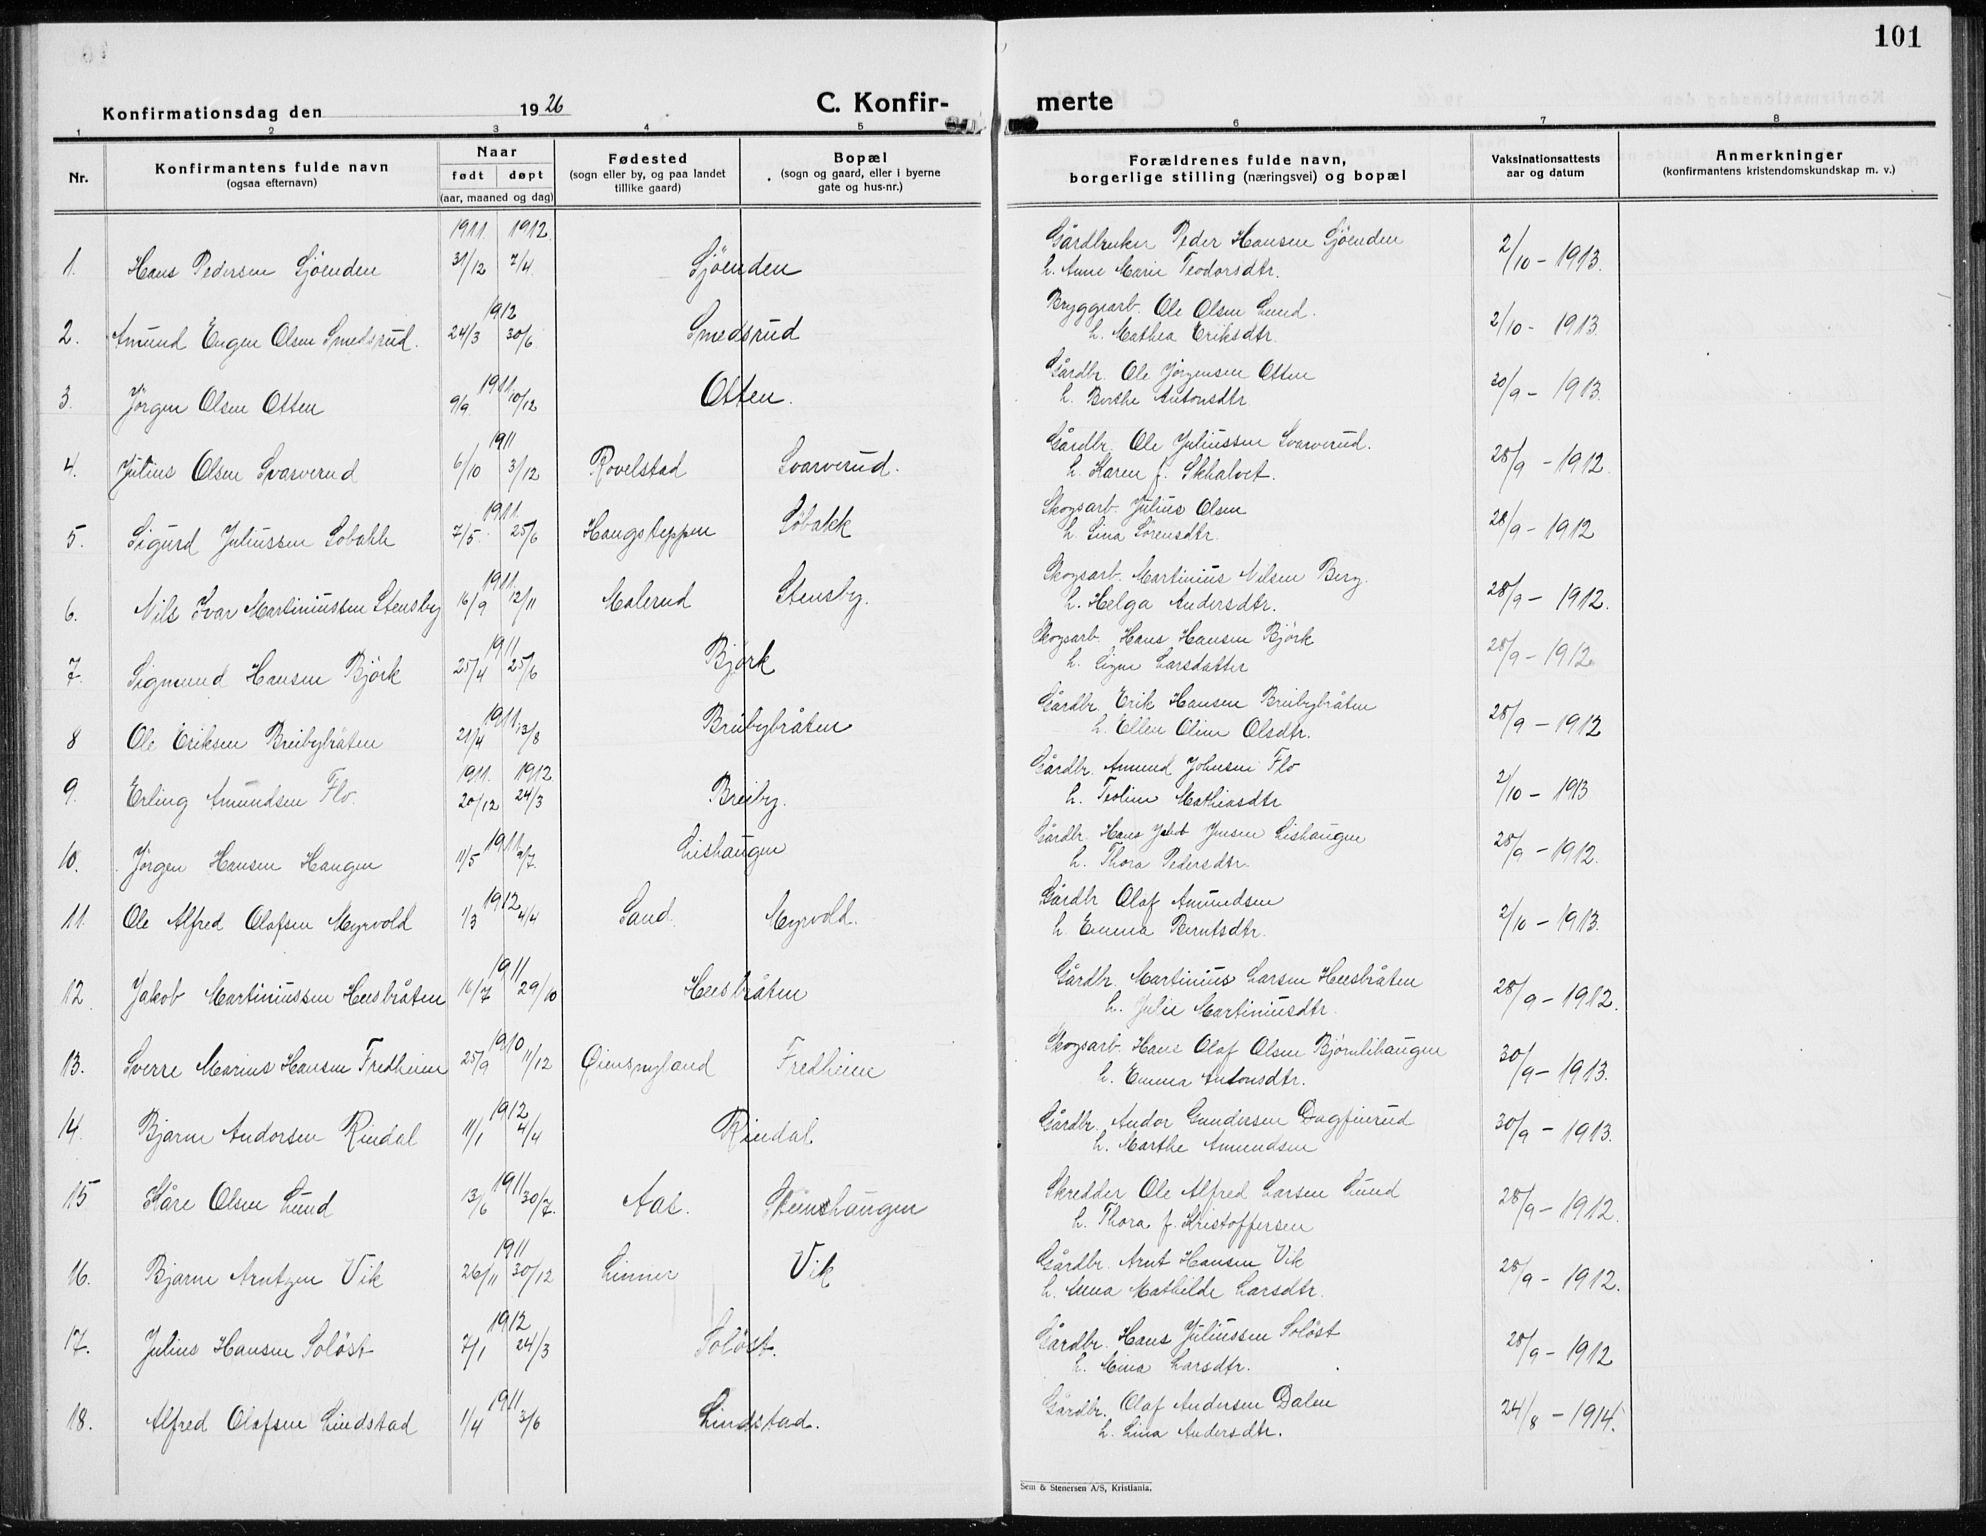 101
Konfirmationsdag den 1926 C. Konfir- merte
1 2 3 4 5 6 7 8
Nr. Konfirmantens fulde navn (ogsaa efternavn) Naar født døpt (aar, maaned og dag) Fødested (sogn eller by, og paa landet tillike gaard) Bopæl (sogn og gaard, eller i byerne gate og hus-nr.) Forældrenes fulde navn, borgerlige stilling (næringsvei) og bopæl Vaksinationsattests aar og datum Anmerkninger (konfirmantens kristendomskundskap m. v.)
1911. 1912. Gårdbruker Peder Hansen Sjöenden
1. Hans Pedersen Sjöenden 31/12 7/4. Sjöenden 2/10 - 1913.
h. Anne Marie Teodorsdtr.
1912 Bryggearb. Ole Olsen Lund.
2. Amund Eugen Olsen Smedsrud. 24/3 30/6 Smedsrud 2/10 - 1913
h. Mathea Eriksdtr.
1911 Gårdbr. Ole Jörgensen Otten
3. Jörgen Olsen Otten 9/9 10/12 Otten. 30/9 - 1913.
h. Berthe Antonsdtr
1911 Gårdbr. Ole Juliussen Svarverud.
4. Julius Olsen Svarverud 6/10 3/12 Rovelstad Svarverud. 28/9 - 1912.
h. Karen f.
1911. Skogsarb. Julius Olsen
5. Sigurd Juliussen Sobakk 7/5. 25/6 Haugskeppen Sobakk 28/9 - 1912
h. Lina Sörensdtr.
1911. Skogsarb. Martinius Nilsen Berg.
6. Nils Ivar Martiniussen Stensby 16/9 12/11 Malerud Stensby. 28/9 - 1912.
h. Helga Andersdtr.
1911 Skogsarb. Hans Hansen Björk
7. Sigmund Hansen Björk 25/4 25/6 Björk 28/9 - 1912
h. Signe Larsdatter
1911. Gårdbr. Erik Hansen Breibybråten
8 Ole Eriksen Breibybråten 21/4 13/8 Breibybråten 28/9 - 1912
h. Ellen Oline Olsdtr.
1911. 1912 Gårdbr. Amund Johnsen Flo
9. Erling Amundsen Flo. 20/12 24/3 Breiby. 2/10 - 1913
h. Teoline Mathiasdtr
1911 Gårdbr. Hans Jakob Jensen Lishaugen
10. Jörgen Hansen Haugen 11/5 9/7. Lishaugen 28/9 - 1912.
h. Thora Pedersdtr.
1912 Gårdbr Olaf Amundsen
11. Ole Alfred Olafsen Myrvold 1/3 4/4 Sand. Myrvold. 2/10 - 1913.
h. Emma Berntsdtr.
1911 Gårdbr. Martinius Larsen Heesbråten
12. Jakob Martiniussen Heesbråten 16/7 29/10 Heesbråten 28/9 - 1912.
h. Julie Martiniusdtr.
1910 Skogsarb. Hans Olaf Olsen Björnlihaugen
13. Sverre Marius Hansen Fredheim 25/9 11/12 Öiensnyland Fredheim 30/9 - 1913.
h. Emma Antonsdtr.
1912 Gårdbr. Andor Gundersen Dagfinrud
14. Bjarne Andorsen Rindal 11/1 4/4 Rindal. 30/9 - 1913.
h. Marthe Amundsen
1911 Skredder Ole Alfred Larsen Lund
15 Kåre Olsen Lund 13/6 30/7. Aas. Steinshaugen 28/9 - 1912.
h. Thora f. Kristoffersen
1911 Gårdbr. Arnt Hansen Vik
16. Bjarne Arntzen Vik 26/11 30/12 Linner Vik 28/9 - 1912.
h. Anna Mathilde Larsdtr.
1912 Gårdbr. Hans Juliussen Solöst
17. Julius Hansen Solöst 7/1 24/3 Solöst. 28/9 - 1912
h. Mina Larsdtr.
1911 Gårdbr. Olaf Andersen Dalen
18. Alfred Olafsen Lindstad 1/4 3/6 Lindstad. 24/8 - 1914.
h. Lina Andersdtr.
Sem & Stenersen A/S, Kristiania.